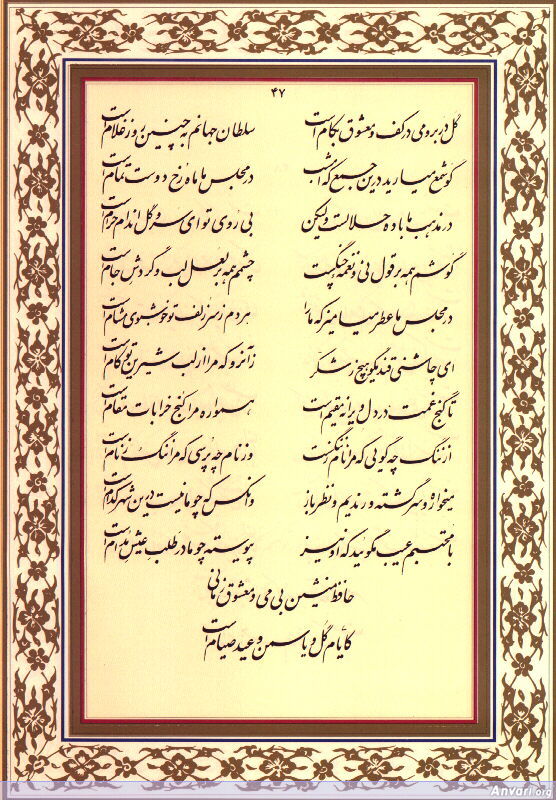 ۴۷
گل در بر و می در کف و معشوق بکام است سلطان جهانم به چنین روز غلام است
گو شمع میارید درین جمع که امشب در مجلس ما ماه رخ دوست تمام است
در مذهب ما باده حلالست ولیکن بی روی تو ای سرو گل اندام حرام است
گوشم همه بر قول نی و نغمه چنگست چشمم همه بر لعل لب و گردش جام است
در مجلس ما عطر میامیز که ما را هر دم ز سر زلف تو خوشبوی مشام است
ای چاشنی قند مگو هیچ ز شکر زآنرو که مرا از لب شیرین تو کام است
تا گنج غمت در دل ویرانه مقیم است همواره مرا کنج خرابات مقام است
از ننگ چه گویی که مرا نام ز ننگست وز نام چه پرسی که مرا ننگ ز نام است
میخواره و سرگشته و رندیم و نظرباز وانکس که چو ما نیست درین شهر کدام است
با محتسبم عیب مگویید که او نیز پیوسته چو ما در طلب عیش مدام است
حافظ منشین بی می و معشوق زمانی
کایام گل و یاسمن و عید صیام است
Anvari.org